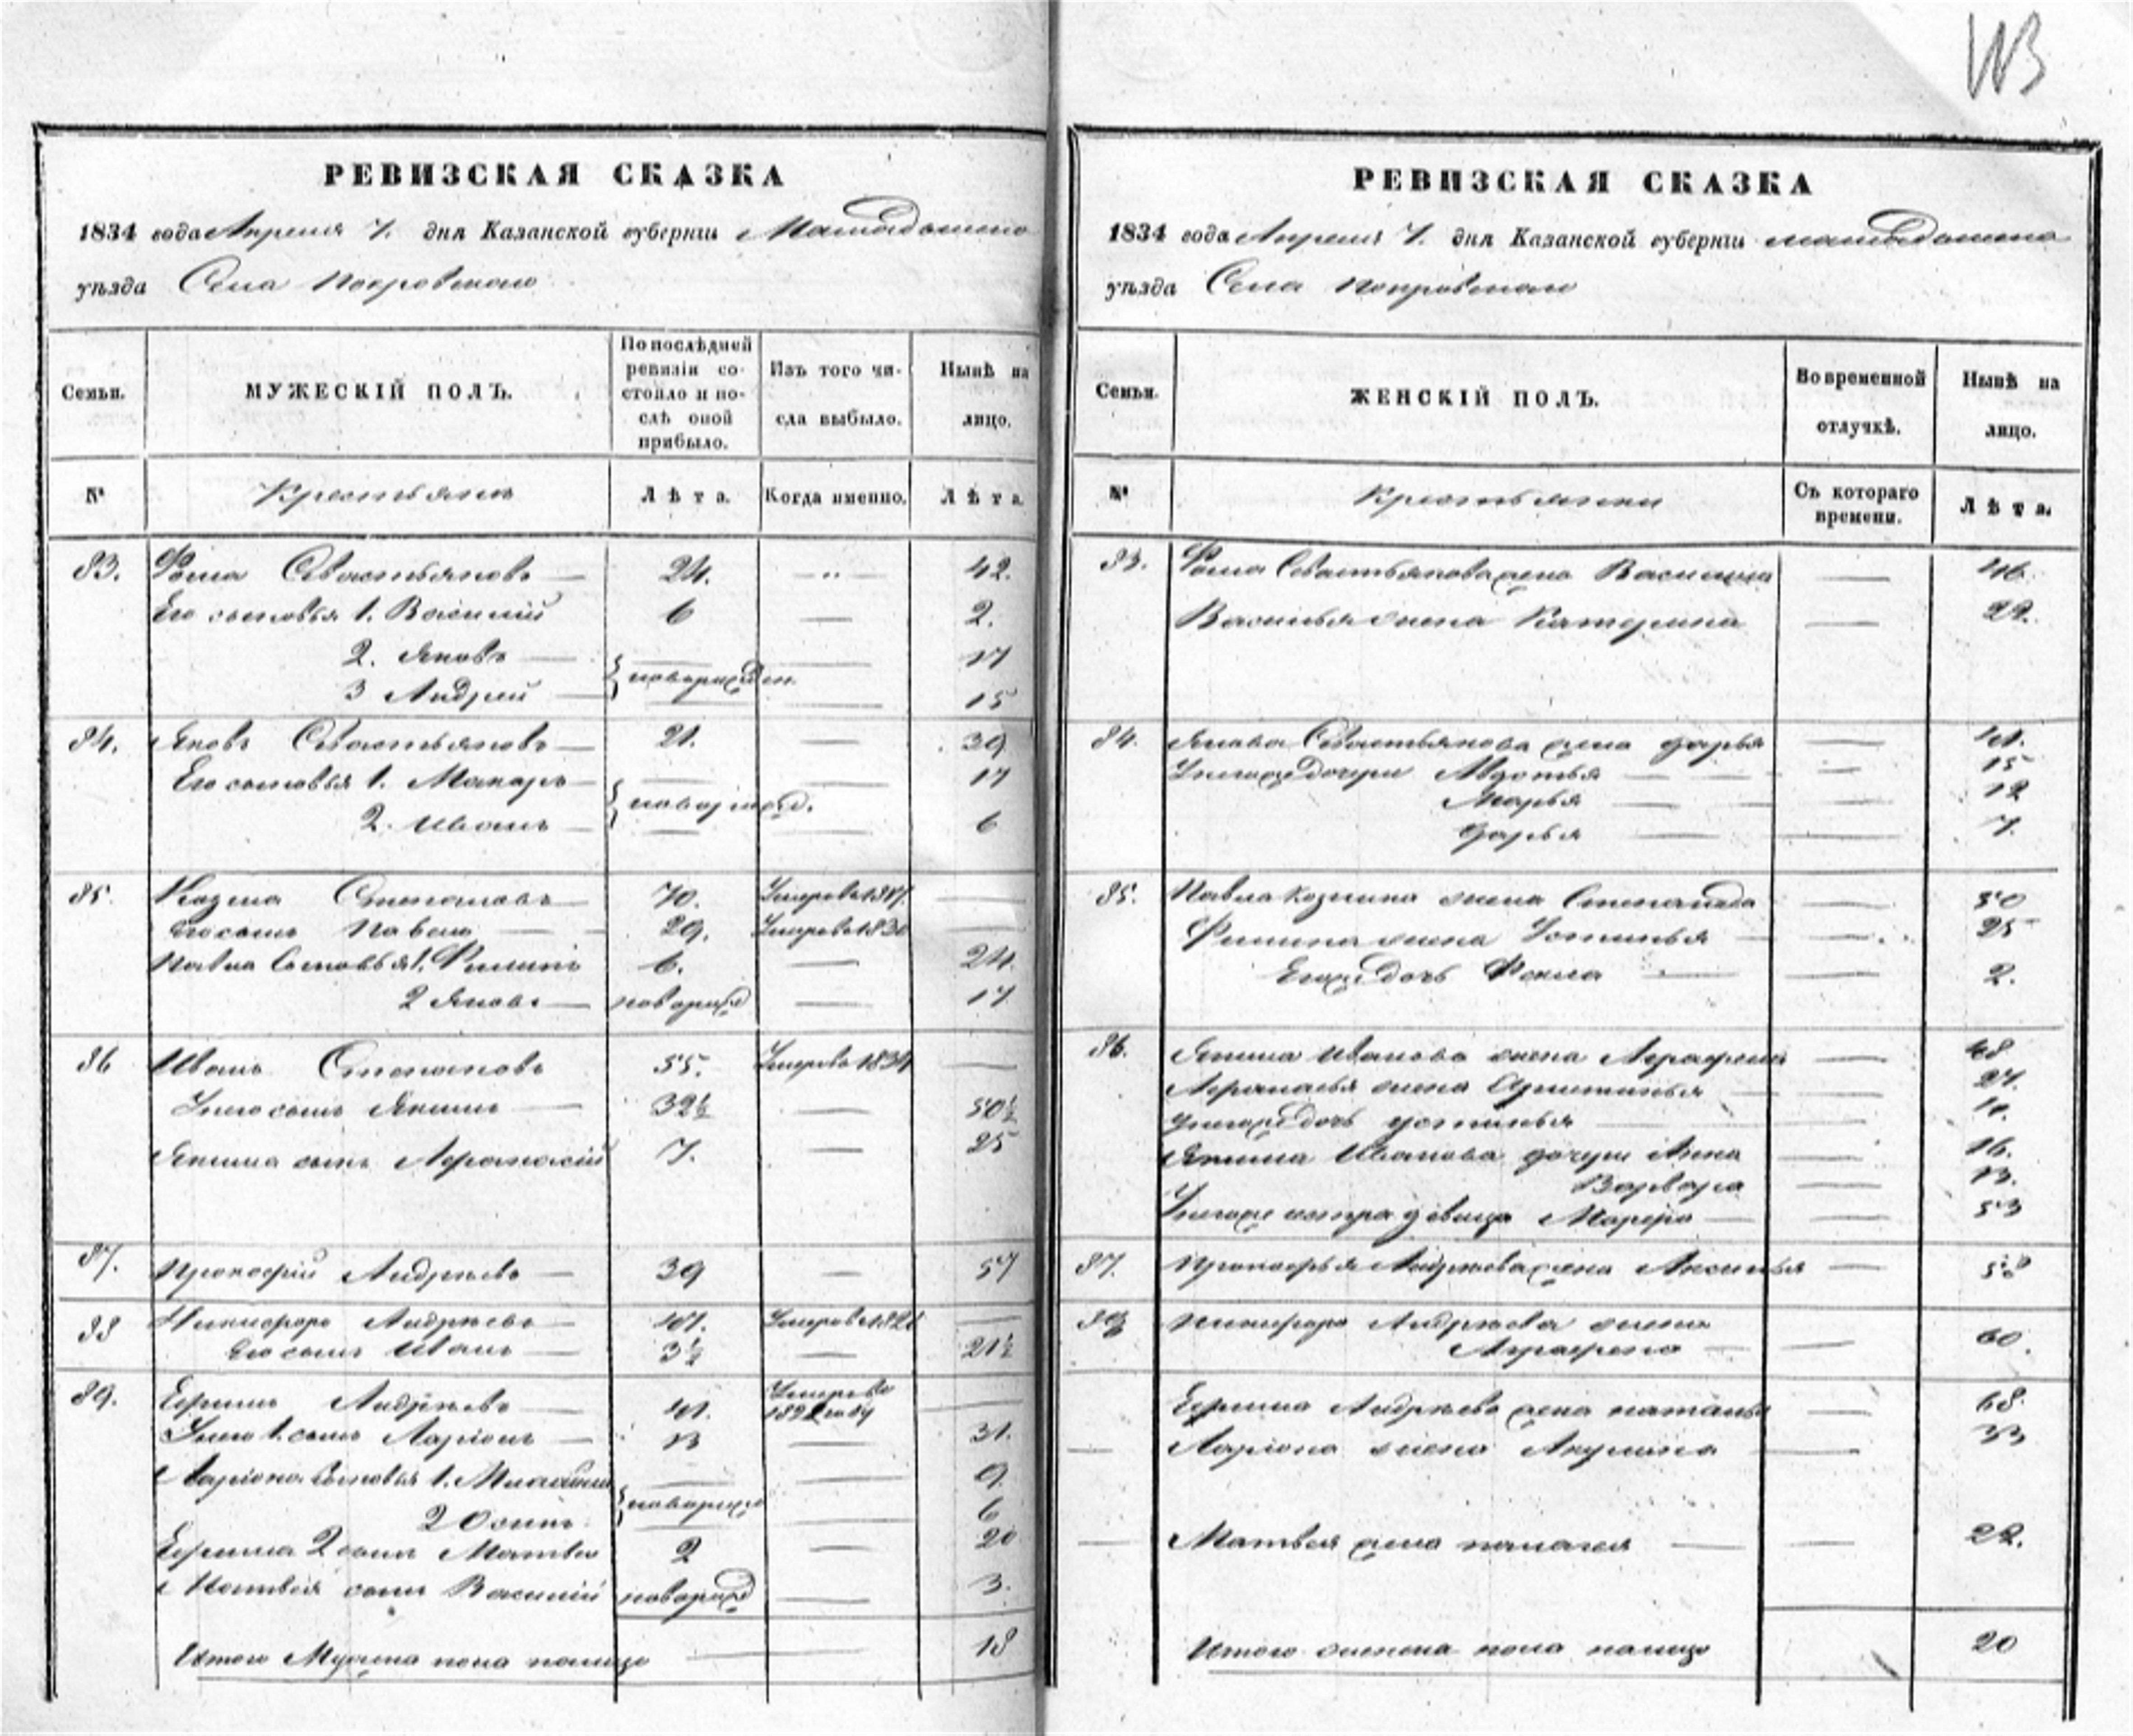 РЕВИЗСКАЯ СКАЗКА
1834 года Апреля 7. дня Казанской губерніи
уѣзда Села Покровскаго
Семьи.
МУЖЕСКІЙ ПОЛЪ.
По послѣдней
ревизіи со-
стояло и по-
слѣ оной
прибыло.
Изъ того чи-
сла выбыло.
Нынѣ на
лицо.
№
Крестьяне
Лѣта.
Когда именно.
Лѣта
83. Фома Севастьяновъ 24. 42.
Его сыновья 1. Василій 6 2.
2. Яковъ 17
3 Андрей новорожден. 15
84. Яковъ Севастьяновъ 21. 39
Его сыновья 1. Макаръ 17
2. Иванъ новорожд. 6
85. Козма Степановъ 70.
Его сынъ Павелъ 29. Умеръ въ 1830
Павла сыновья 1. Филипъ 6. 24.
2 Яковъ новорожд 17
86 Иванъ Степановъ 55. Умеръ въ 1834
У него сынъ Якимъ 32½ 50½
Якима сынъ Афанасій 7. 25
87. Прокофій Андрѣевъ 39 57
88 Никифоръ Андрѣевъ
Его сынъ Иванъ 3½ 21½
89. Ефимъ Андрѣевъ Умеръ въ
У него 1. сынъ Ларіонъ 13 31.
Ларіона сыновья 1. 9.
2 Осипъ новорожд 6
Ефима 2 сынъ Матвей 2 20
Матвея сынъ Василій новорожд 3.
Итого Мужеска пола налицо 18
РЕВИЗСКАЯ СКАЗКА
1834 года Апреля 7. дня Казанской губерніи
уѣзда Села Покровскаго
Семьи.
ЖЕНСКІЙ ПОЛЪ.
Во временной
отлучкѣ.
Нынѣ на
лицо.
№
Крестьянки
Съ котораго
времени.
Лѣта.
83. Фома Севастьянова жена 46.
Василья жена Катерина 22.
84. Якова Севастьянова жена Дарья 41.
У него же дочери Авдотья 15
Марья 12
Дарья 7.
85. Павла Козмина жена Степанида 50
Филипа жена Устинья 25
Его же дочь Фекла 2.
86. Якима Иванова жена Аграфена 48.
Афанасья жена 27.
У него же дочь Устинья
Якима Иванова дочери Анна 16.
Варвара 13.
У него же сестра девица Марфа 53
87. Прокофья Андрѣева жена Аксинья
88 Никифора Андрѣева жена
Аграфена 60.
Ефима Андрѣева жена Наталья 68.
Ларіона жена Акулина 33
Матвея жена Палагея 22.
Итого женска пола налицо 20